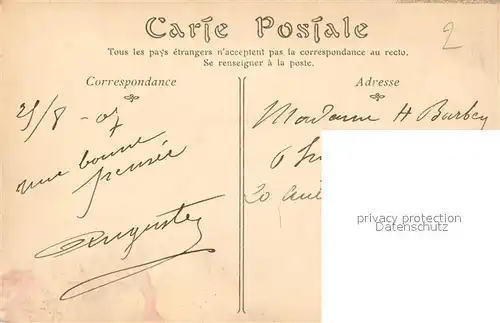 Carte Postale
Tous les pays étrangers n'acceptent pas la correspondance au recto.
Se renseigner à la poste.
2
Correspondance
Adresse
25/8 - 07
une bonne
pensée
Auguste
Madame H Burbey
6
20
privacy protection
Persönlichkeitsschutz